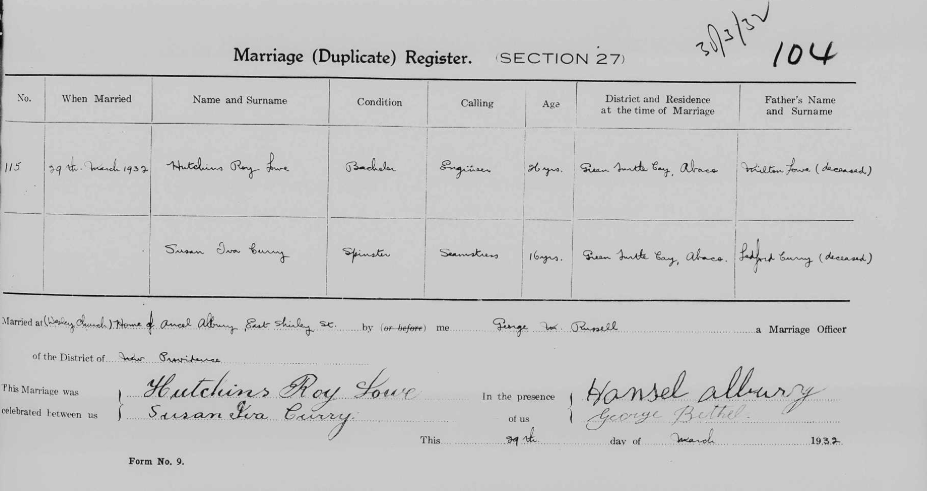 30/3/32
104
Marriage (Duplicate) Register. (SECTION 27)
No. When Married Name and Surname Condition Calling Age District and Residence at the time of Marriage Father's Name and Surname
115 29th. March 1932 Hutchins Roy Lowe Bachelor Engineer 26yrs. Green Turtle Cay, Abaco Milton Lowe (deceased)
Susan Iva Curry Spinster Seamstress 16yrs. Green Turtle Cay, Abaco. Ledford Curry (deceased)
Married at (Wesley Church) Home of Ancel Albury East Shirley St. by (or before) me George M. Russell a Marriage Officer
of the District of New Providence
This Marriage was } Hutchins Roy Lowe In the presence { Hansel Albury
celebrated between us } Susan Iva Curry. of us { George Bethel.
This 29th day of March 1932
Form No. 9.